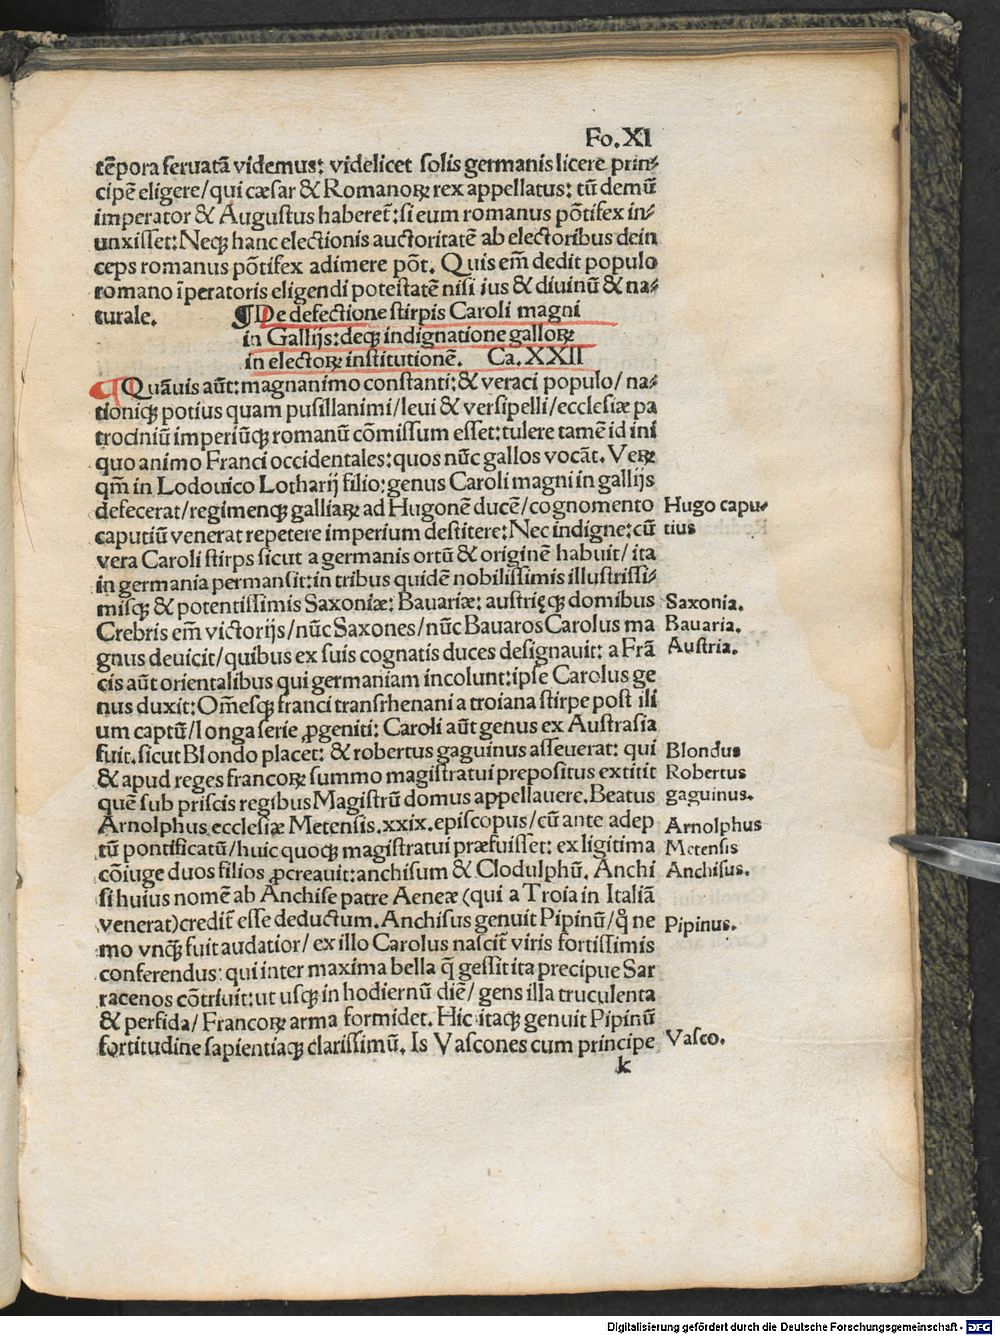 Fo.XI
tēpora ſeruatā videmus: videlicet ſolis germanis licere prin⸗
cipē eligere/qui cæſar & Romanoꝝ rex appellatus: tū demū
imperator & Auguſtus haberet̄:ſi eum romanus pōtifex in⸗
unxiſſet:Neqꝫ hanc electionis auctoritatē ab electoribus dein
ceps romanus pōtifex adimere pōt. Quis em̄ dedit populo
romano īperatoris eligendi poteſtatē niſi ius & diuinū & na⸗
turale.
¶De defectione ſtirpis Caroli magni
in Gallijs:deqꝫ indignatione galloꝝ
in electoꝝ inſtitutionē. Ca.XXII
¶Quāuis aūt:magnanimo conſtanti:& veraci populo/na⸗
tioniqꝫ potius quam puſillanimi/leui & verſipelli/eccleſiæ pa
trociniū imperiūqꝫ romanū cōmiſſum eſſet:tulere tamē id ini
quo animo Franci occidentales:quos nūc gallos vocāt. Veꝝ
qm̄ in Lodouico Lotharij filio:genus Caroli magni in gallijs
defecerat/regimenqꝫ galliaꝝ ad Hugonē ducē/cognomento
caputiū venerat repetere imperium deſtitere: Nec indigne:cū
vera Caroli ſtirps ſicut a germanis ortū & originē habuit/ ita
in germania permanſit:in tribus quidē nobiliſſimis illuſtriſſi⸗
miſqꝫ & potentiſſimis Saxoniæ: Bauariæ: auſtrięqꝫ domibus
Crebris em̄ victorijs/nūc Saxones/nūc Bauaros Carolus ma
gnus deuicit/quibus ex ſuis cognatis duces deſignauit: a Frā
cis aūt orientalibus qui germaniam incolunt:ipſe Carolus ge
nus duxit:Om̄eſqꝫ franci tranſrhenani a troiana ſtirpe poſt ili
um captū/longa ſerie ꝓgeniti: Caroli aūt genus ex Auſtraſia
fuit.ſicut Blondo placet: & robertus gaguinus aſſeuerat: qui
& apud reges francoꝝ ſummo magiſtratui prepoſitus extitit
quē ſub priſcis regibus Magiſtrū domus appellauere.Beatus
Arnolphus eccleſiæ Metenſis.xxix.epiſcopus/cū ante adep
tū pontificatū/huic quoqꝫ magiſtratui præfuiſſet: ex ligitima
cōiuge duos filios ꝓcreauit:anchiſum & Clodulphū. Anchi
ſi huius nomē ab Anchiſe patre Aeneæ (qui a Troia in Italiā
venerat)credit̄ eſſe deductum.Anchiſus genuit Pipinū/q̄ ne
mo vnqꝫ fuit audatior/ ex illo Carolus naſcit̄ viris fortiſſimis
conferendus: qui inter maxima bella q̄ geſſit ita precipue Sar
racenos cōtriuit:ut uſqꝫ in hodiernū diē/ gens illa truculenta
& perfida/ Francoꝝ arma formidet. Hic itaqꝫ genuit Pipinū
fortitudine ſapientiaqꝫ clariſſimū. Is Vaſcones cum principe
k
Hugo capu⸗
tius
Saxonia.
Bauaria.
Auſtria.
Blondus
Robertus
gaguinus.
Arnolphus
Metenſis
Anchiſus.
Pipinus.
Vaſco.
Digitalisierung gefördert durch die Deutsche Forschungsgemeinschaft - DFG